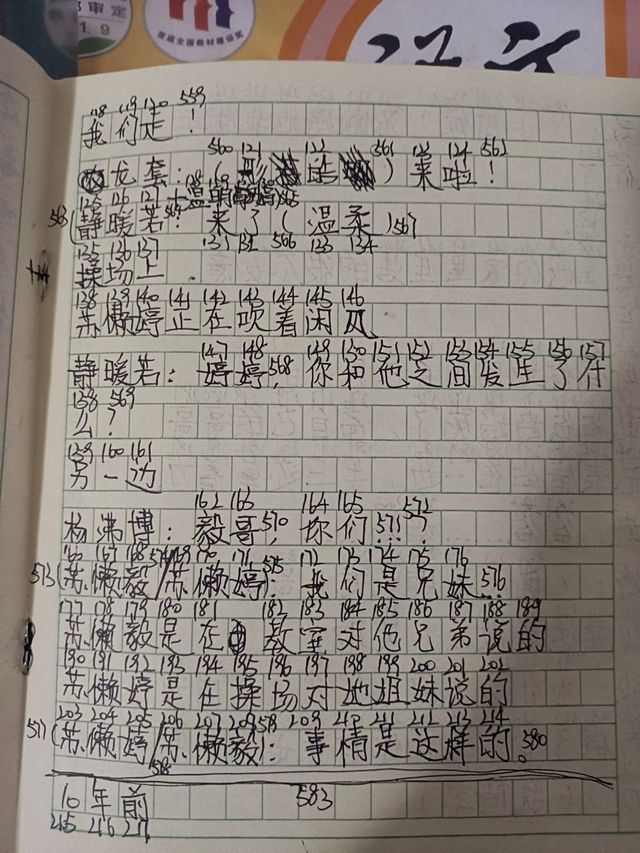 审定
1.9
首届全国教材建设奖
语文
118 119 120 559
我们走！
560 121 122 561 123 124 562
龙套：（形 的）来啦！
125 126 127 565
563（静暖若：来了（温柔）567
131 132 566 133 134
135 136 137
操场上
138 139 140 141 142 143 144 145 146
苏懒婷正在吹着闲风
147 148 568 149 150 151 152 153 154 155 156 157
静暖若：婷婷，你和他之间发生了什
158 569
么？
159 160 161
另一边
162 163 570 164 165 571 572
杨沸博：毅哥，你们……？
166 167 168 574 169 170 171 575 172 173 174 175 176
573（苏懒毅/苏懒婷：我们是兄妹 576
177 178 179 180 181 182 183 184 185 186 187 188 189
苏懒毅是在教室对他兄弟说的
190 191 192 193 194 195 196 197 198 199 200 201 202
苏懒婷是在操场对她姐妹说的
203 204 205 206 207 208 209 210 211 212 213 214
577（苏懒婷/苏懒毅）：事情是这样的。580
578
10年前 583
215 216 217